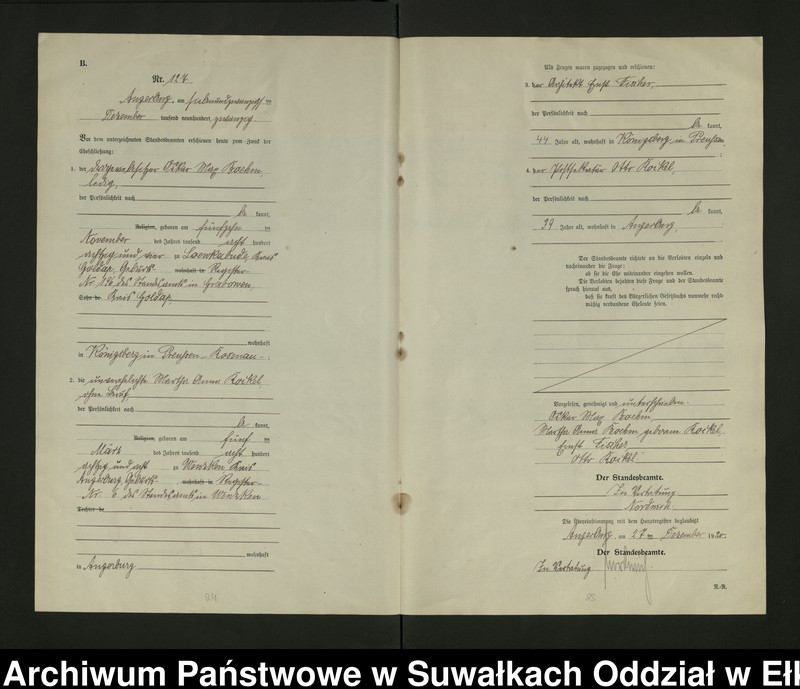 B.
Nr. 127
Angerburg, am siebenundzwanzigsten
Dezember tausend neunhundert zwanzig
Vor dem unterzeichneten Standesbeamten erschienen heute zum Zweck der
Eheschließung:
1. der Oskar Max Boehm,
ledig,
der Persönlichkeit nach
be kannt,
Religion, geboren am fünfzehn ten
November des Jahres tausend acht hundert
achtzig und vier zu Kreis
Goldap, Geburts- wohnhaft in Register
Nr. des Standesamts in Grabowen,
Sohn de Kreis Goldap,
wohnhaft
in Königsberg in Preußen - Rosenau -.
2. die unverehelichte Martha Anna Roikel,
ohne Beruf,
der Persönlichkeit nach
be kannt,
Religion, geboren am fünf ten
März des Jahres tausend acht hundert
achtzig und acht zu Wenzken Kreis
Angerburg, Geburts- wohnhaft in Register
Nr. 6 des Standesamts in Wenzken
Tochter de
wohnhaft
in Angerburg
84
Als Zeugen waren zugezogen und erschienen:
3. der Architekt Ernst Fischer,
der Persönlichkeit nach
be kannt,
44 Jahre alt, wohnhaft in Königsberg in Preußen
4. der Postsekretär Otto Roikel,
der Persönlichkeit nach
be kannt,
39 Jahre alt, wohnhaft in Angerburg,
Der Standesbeamte richtete an die Verlobten einzeln und
nacheinander die Frage:
ob sie die Ehe miteinander eingehen wollen.
Die Verlobten bejahten diese Frage und der Standesbeamte
sprach hierauf aus,
daß sie kraft des Bürgerlichen Gesetzbuchs nunmehr recht-
mäßig verbundene Eheleute seien.
Vorgelesen, genehmigt und unterschrieben.
Oskar Max Boehm
Martha Anna Boehm geborene Roikel,
Ernst Fischer
Otto Roikel
Der Standesbeamte.
In Vertretung
Die Übereinstimmung mit dem Hauptregister beglaubigt
Angerburg, am 27 ten Dezember 1920.
Der Standesbeamte.
In Vertretung
85
R.-R.
Archiwum Państwowe w Suwałkach Oddział w Ełk